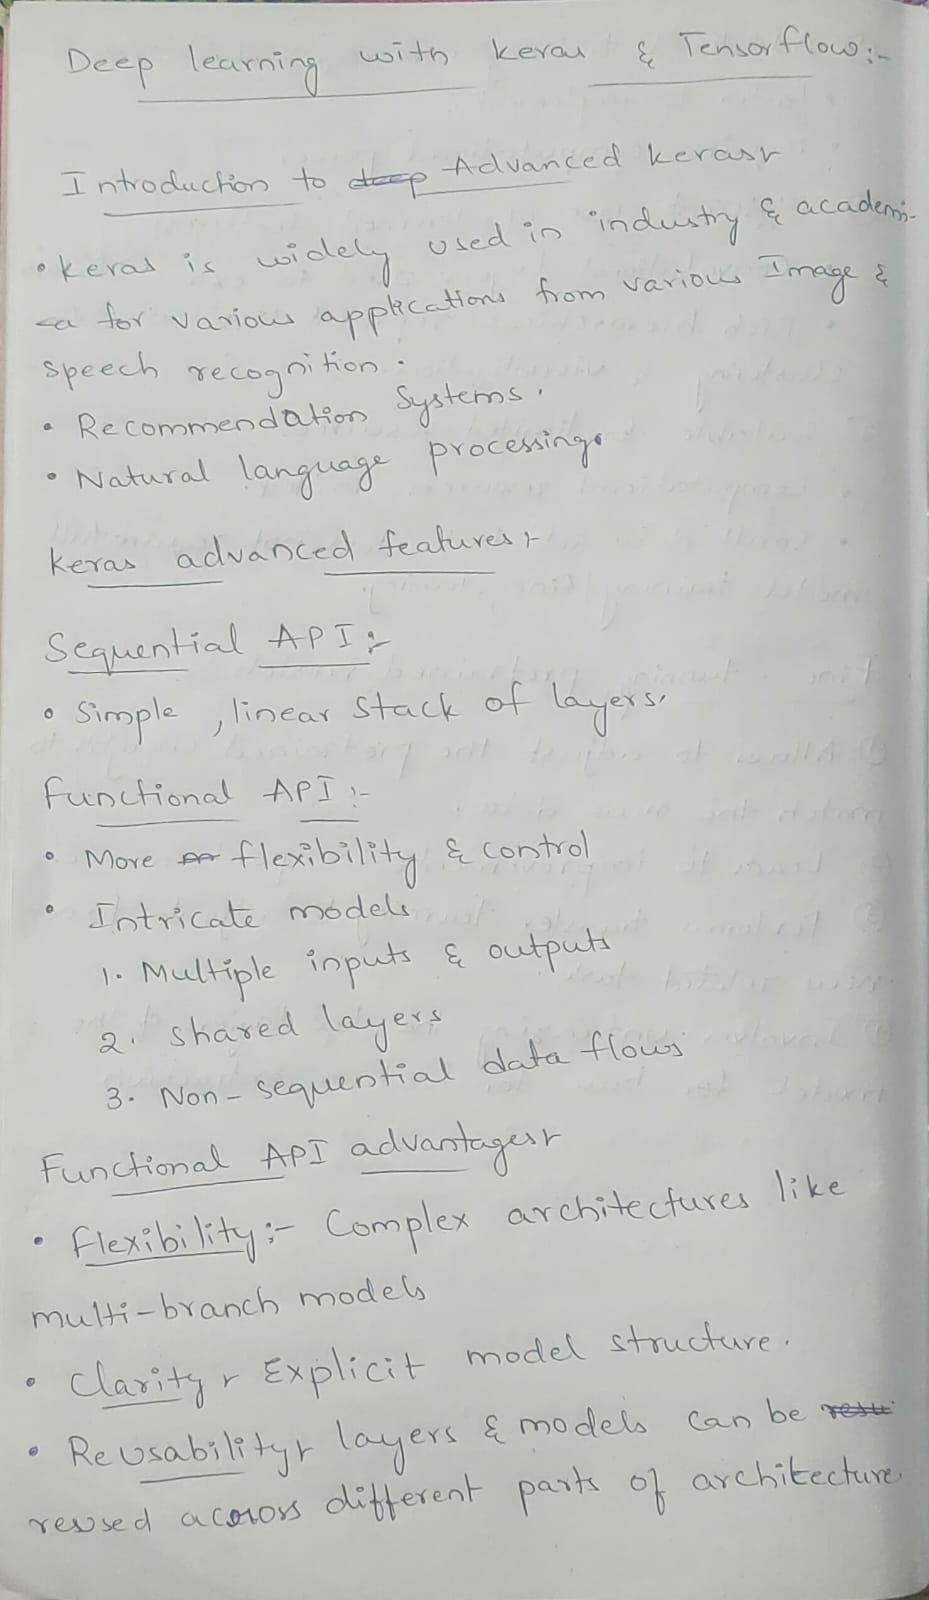 Deep learning with keras & Tensorflow:-
Introduction to deep Advanced keras:-
• keras is widely used in industry & academi-
ca for various applications from various Image &
speech recognition.
• Recommendation Systems.
• Natural language processing.
keras advanced features:-
Sequential API:-
• Simple, linear stack of layers.
functional API:-
• More flexibility & control
• Intricate models
1. Multiple inputs & outputs
2. shared layers
3. Non-sequential data flows
Functional API advantages:-
• flexibility:- Complex architectures like
multi-branch models
• Clarity:- Explicit model structure.
• Reusability:- layers & models can be
reused across different parts of architecture.